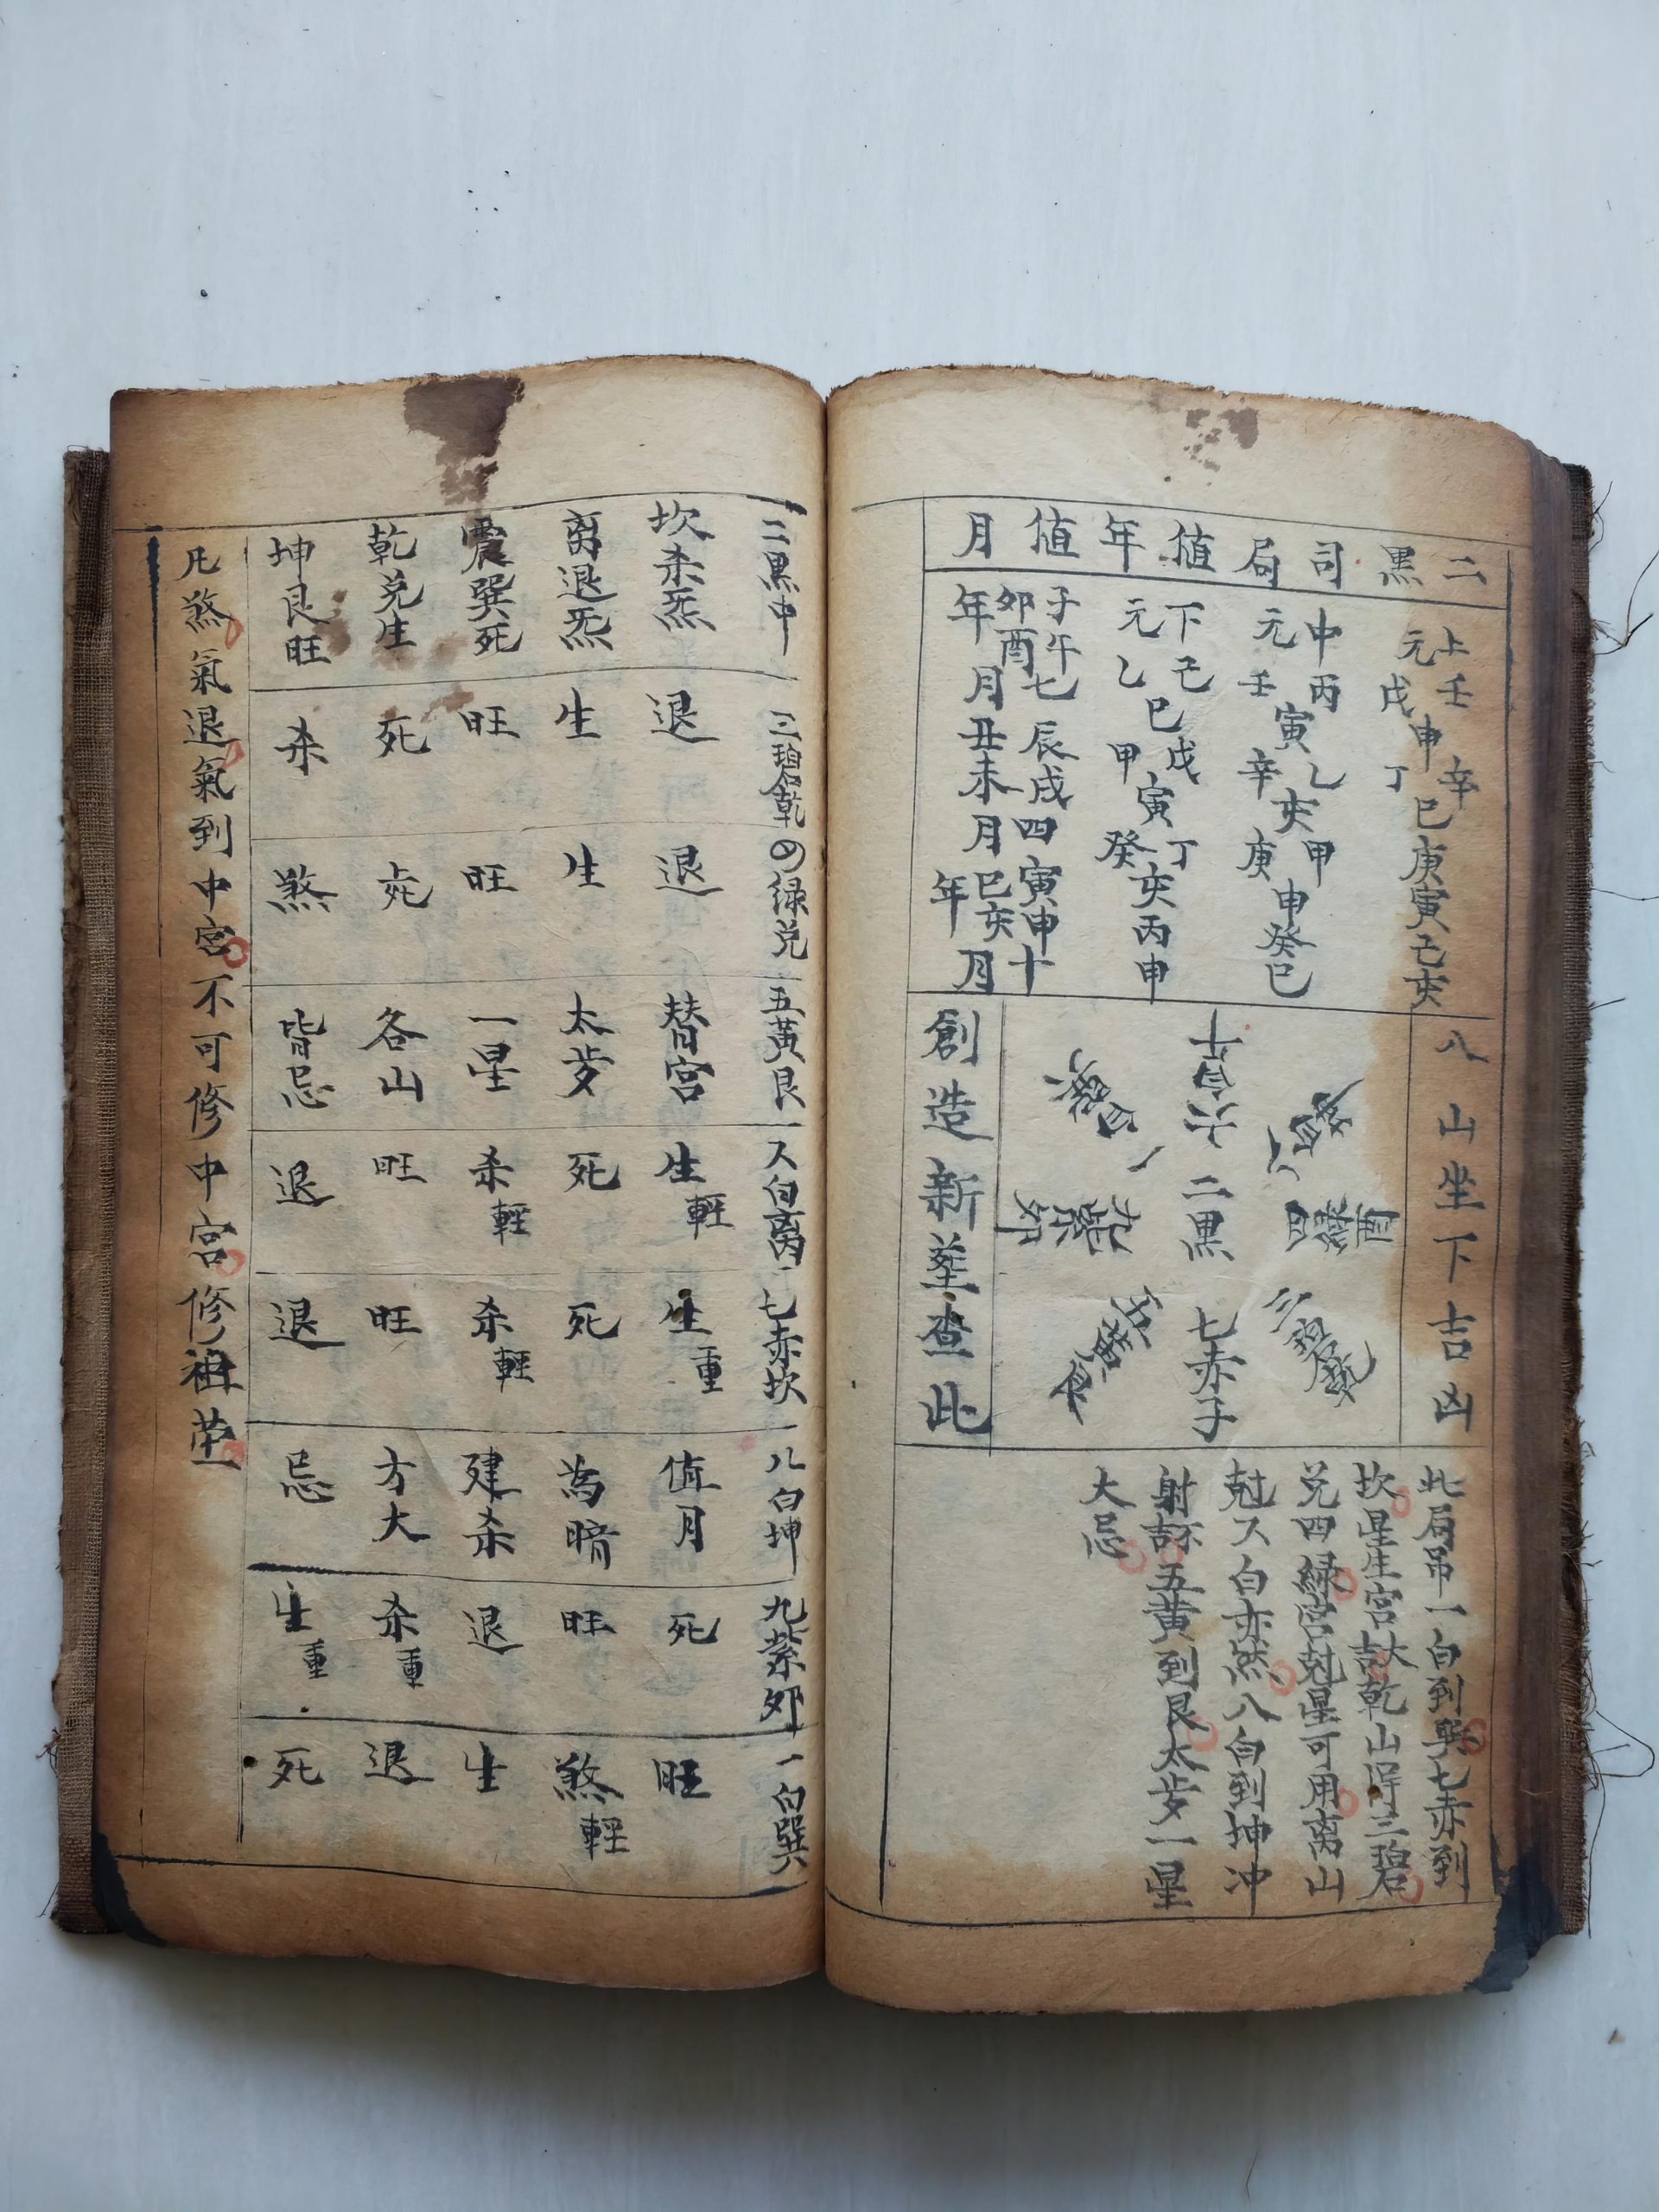 二黑司局值年值月
上元
壬戊申
辛丁巳庚寅己亥
中元
丙壬寅
乙辛亥
甲庚申癸巳
下元
己乙巳
戊甲寅
丁癸亥丙申
子午卯酉年七月
辰戌丑未月四月
寅申巳亥年十月
八山坐下吉凶
二黑
七赤子
三碧
五黃艮
創造新塋查此
此局吊一白到巽七赤到
坎星生宮大吉乾山得三碧
兌四綠宮尅星可用离山
尅六白亦然八白到坤冲
射不吉五黃到艮太歲一星
大忌
二黑中
三碧乾
四绿兌
五黃艮
六白离
七赤坎
八白坤
九紫卯
一白巽
坎杀炁
退
退
替宮
生輕
生重
值月
死
旺
离退炁
生
生
太歲
死
死
為暗
旺
煞輕
震巽死
旺
旺
一星
杀輕
杀輕
建杀
退
生
乾兌生
死
死
各山
旺
旺
方大
杀重
退
坤艮旺
杀
煞
皆忌
退
退
忌
生重
死
凡煞氣退氣到中宮不可修中宮修祖塋